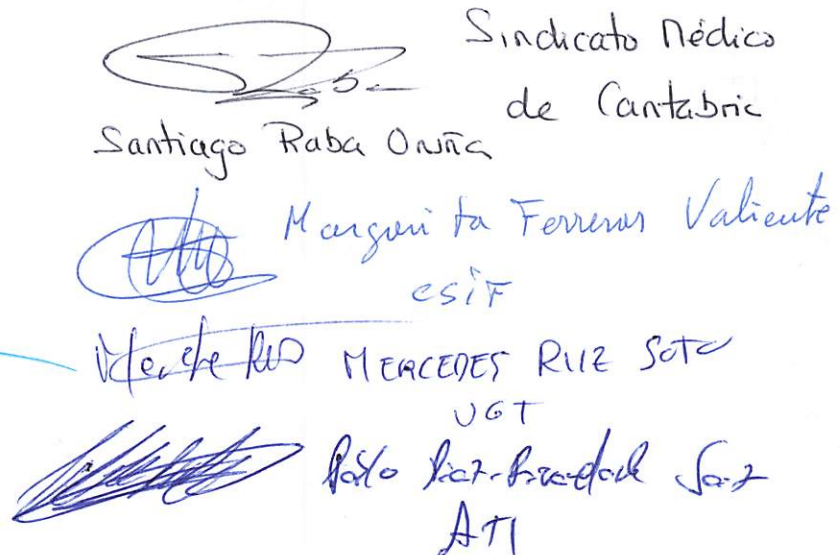 Sindicato Médico
de Cantabria
Santiago Raba Oruña
Margarita Ferreras Valiente
CSIF
MERCEDES RUIZ SOTO
UGT
Pablo Díaz- Saiz
ATI